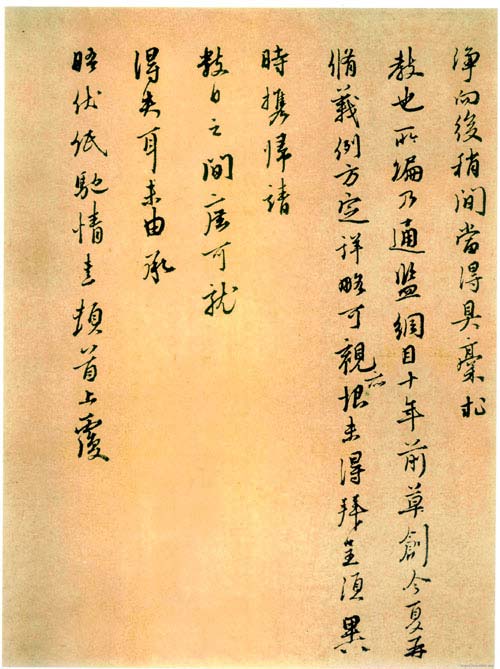 浄向後稍間當得具稾求
教也所編乃通鑑綱目十年前草創今夏再
脩義例方定詳略可觀亦恨未得拜呈須異
時携歸請
數日之間庶可就
得失耳未由承
晤伏紙馳情熹頓首上覆